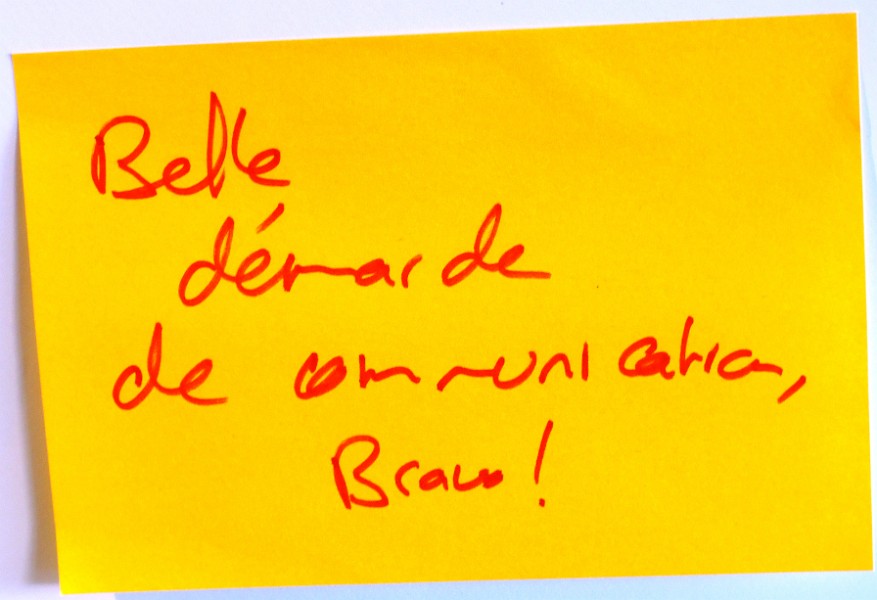 Belle
démarche
de communication,
Bravo!